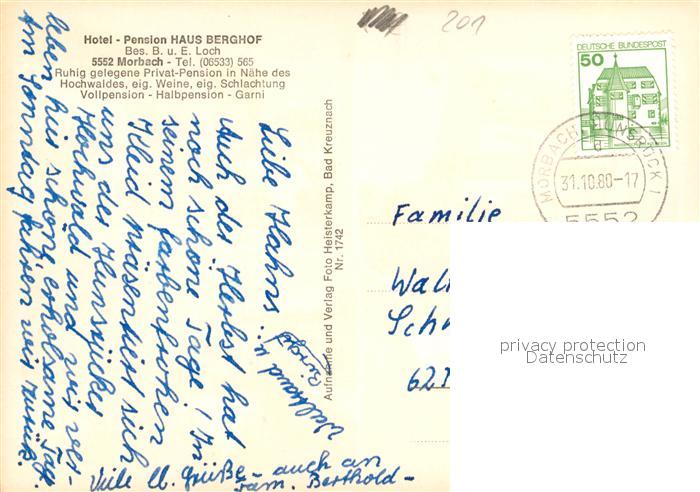 201
Hotel - Pension HAUS BERGHOF
Bes. B. u. E. Loch
5552 Morbach - Tel. (06533) 565
Ruhig gelegene Privat-Pension in Nähe des
Hochwaldes, eig. Weine, eig. Schlachtung
Vollpension - Halbpension - Garni
Liebe Hahns...
Auch der Herbst hat
noch schöne Tage! In
seinem farbenfrohen
Kleid präsentiert sich
uns der Hunsrücker
Hochwald und wir ver-
leben hier schöne, erholsame Tage.
Am Sonntag fahren wir zurück.
Viele lb. Grüße - auch an
Fam. Berthold -
Waltraud u.
Aufnahme und Verlag Foto Heisterkamp, Bad Kreuznach
Nr. 1742
DEUTSCHE BUNDESPOST
50
MORBACH, HUNSRÜCK 1
d
31.10.80-17
5552
Familie
Wal
Sch
62
privacy protection
Datenschutz